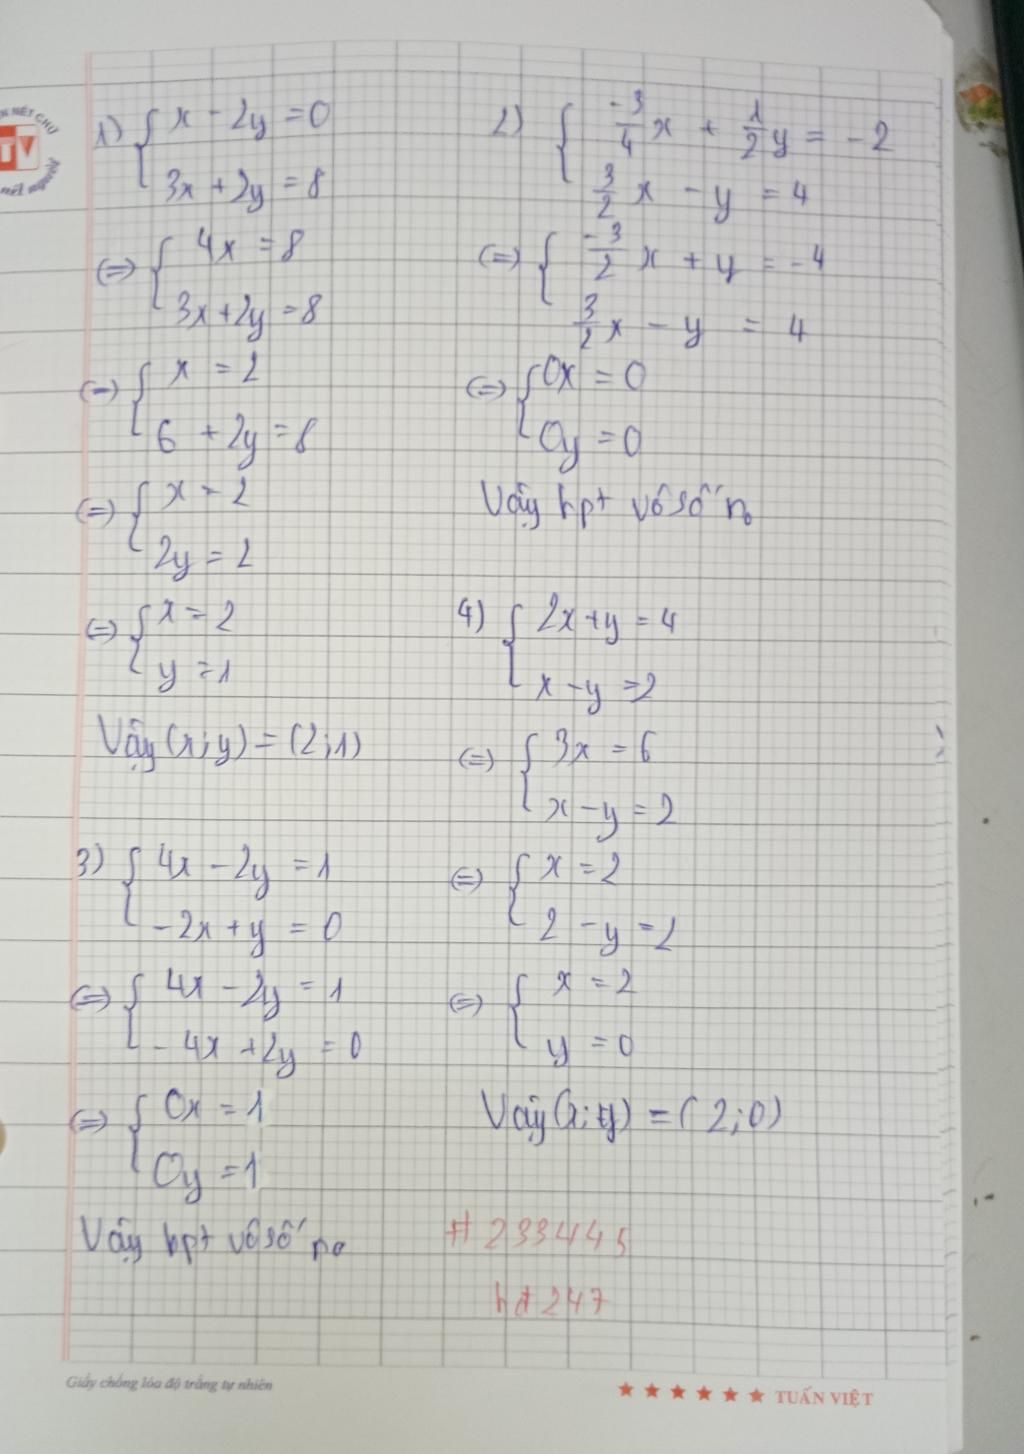 1) { x - 2y = 0
3x + 2y = 8
(=) { 4x = 8
3x + 2y = 8
(=) { x = 2
6 + 2y = 8
(=) { x = 2
2y = 2
(=) { x = 2
y = 1
Vậy (x; y) = (2; 1)
3) { 4x - 2y = 1
- 2x + y = 0
(=) { 4x - 2y = 1
- 4x + 2y = 0
(=) { 0x = 1
0y = 1
Vậy hpt vô số no
2) { -3/4 x + 1/2 y = -2
3/2 x - y = 4
(=) { -3/2 x + y = -4
3/2 x - y = 4
(=) { 0x = 0
0y = 0
Vậy hpt vô số no
4) { 2x + y = 4
x - y = 2
(=) { 3x = 6
x - y = 2
(=) { x = 2
2 - y = 2
(=) { x = 2
y = 0
Vậy (x; y) = (2; 0)
# 2334445
hđ 247
Giấy chống lóa độ trắng tự nhiên
TUẤN VIỆT
NÉT CHỮ
TV
nết người